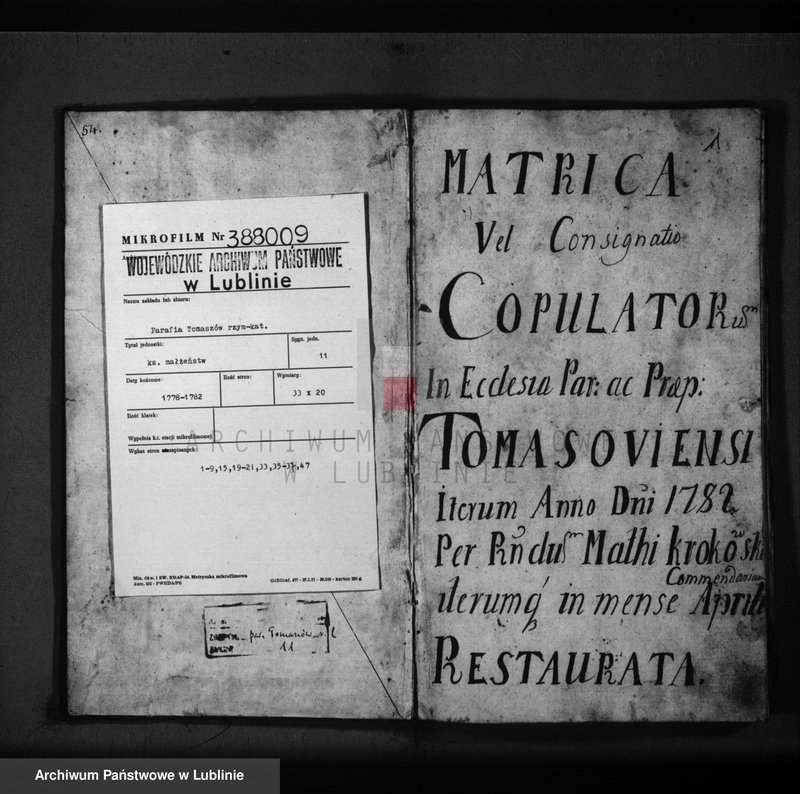 54.
MIKROFILM Nr 388009
WOJEWÓDZKIE ARCHIWUM PAŃSTWOWE
w Lublinie
Nazwa zakładu lub zbioru:
Parafia Tomaszów rzym-kat.
Tytuł jednostki:
ks. małżeństw
Sygn. jedn.
11
Daty końcowe:
1778-1782
Ilość stron:
Wymiary:
33 x 20
Ilość klatek:
Wypełnia k.t. stacji mikrofilmowej
Wykaz stron
1-9,15,19-21,33,35-37,47
par. Tomaszów r. l.
11
1
MATRICA
Vel Consignatio
COPULATORum
In Ecclesia Par: ac Præp:
TOMASOVIENSI
Iterum Anno Dni 1782
Per Rndum Mathi Krokowski
Commendarium
iterumq in mense Aprili
RESTAURATA.
ARCHIWUM PAŃSTWOWE
W LUBLINIE
Archiwum Państwowe w Lublinie